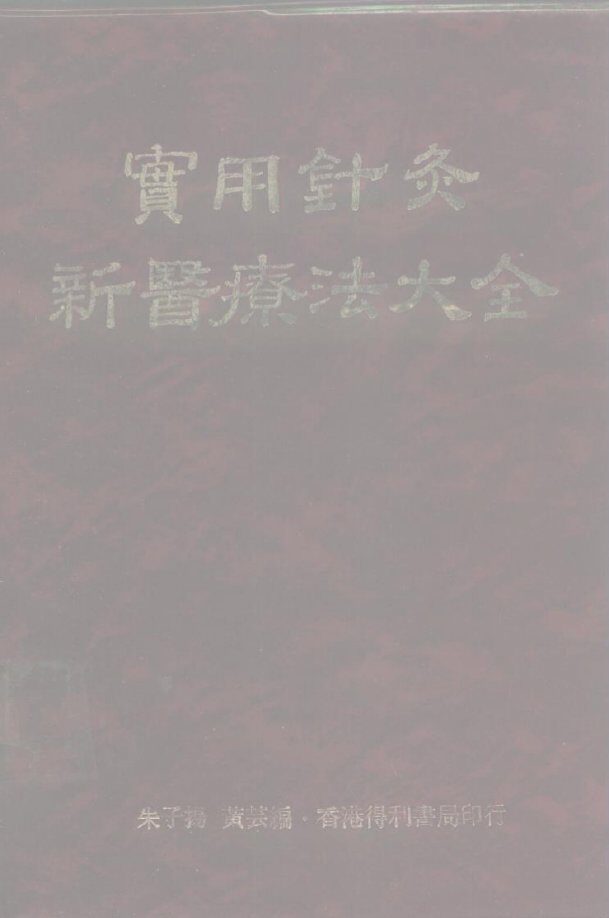 實用針灸
新醫療法大全
朱子揚 黃芸編·香港得利書局印行